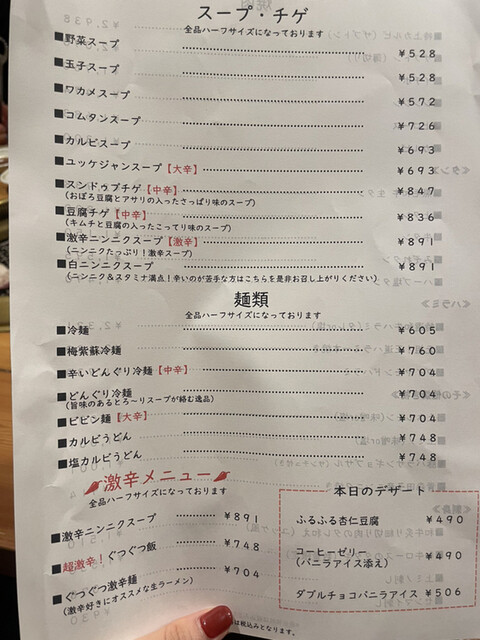 スープ・チゲ
全品ハーフサイズになっております
■野菜スープ ¥528
■玉子スープ ¥528
■ワカメスープ ¥572
■コムタンスープ ¥726
■カルビスープ ¥693
■ユッケジャンスープ【大辛】 ¥693
■スンドゥブチゲ【中辛】 ¥847
(おぼろ豆腐とアサリの入ったさっぱり味のスープ)
■豆腐チゲ【中辛】 ¥836
(キムチと豆腐の入ったこってり味のスープ)
■激辛ニンニクスープ【激辛】 ¥891
(ニンニクたっぷり!激辛スープ)
■白ニンニクスープ ¥891
(ニンニク&スタミナ満点!辛いのが苦手な方はこちらを是非お召し上がりください)
麺類
全品ハーフサイズになっております
■冷麺 ¥605
■梅紫蘇冷麺 ¥760
■辛いどんぐり冷麺【中辛】 ¥704
■どんぐり冷麺 ¥704
(旨味のあるとろ〜りスープが絡む逸品)
■ビビン麺【大辛】 ¥704
■カルビうどん ¥748
■塩カルビうどん ¥748
激辛メニュー
全品ハーフサイズになっております
■激辛ニンニクスープ ¥891
■超激辛!ぐつぐつ飯 ¥748
■ぐつぐつ激辛麺 ¥704
(激辛好きにオススメな生ラーメン)
本日のデザート
ふるふる杏仁豆腐 ¥490
コーヒーゼリー ¥490
(バニラアイス添え)
ダブルチョコバニラアイス ¥506
は税込みとなります。